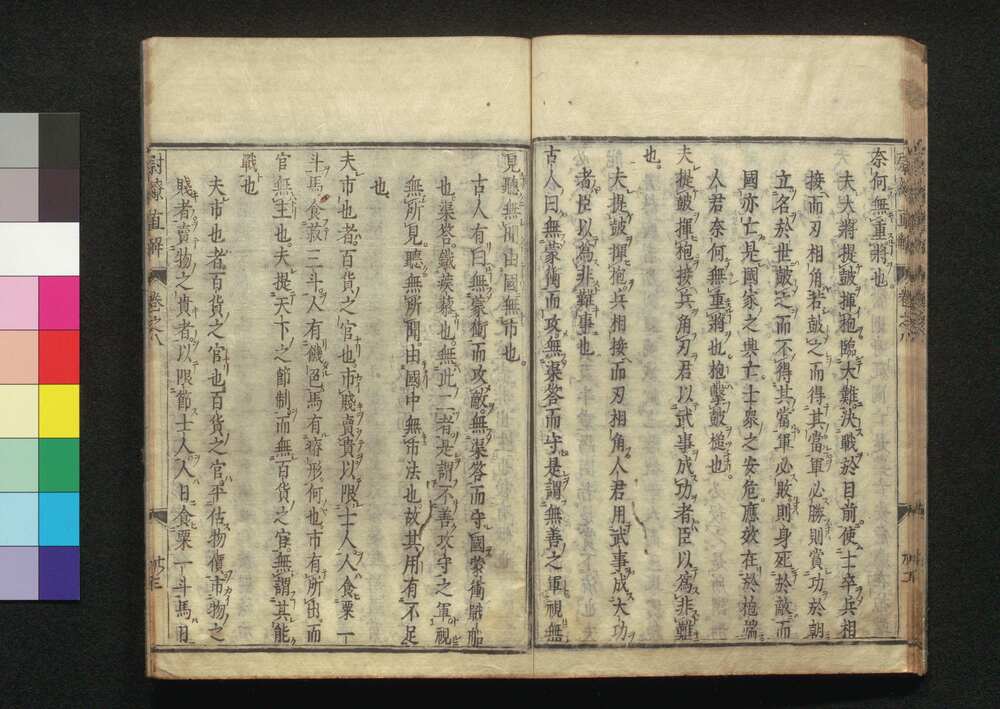 奈何無重將也
夫大將提鼓揮枹臨大難決戰於目前使士卒兵相
接而刃相角若鼓之而得其當軍必勝則賞功於朝
立名於世鼓之而不得其當軍必敗則身死於敵而
國亦亡是國家之興亡士衆之安危應效在於枹端
人君奈何無重將也枹擊鼓槌也
夫提鼓揮枹接兵角刃君以武事成功者臣以為非難
也
夫提鼓揮枹兵相接而刃相角人君用武事成大功
者臣以為非難事也
古人曰無蒙衝而攻無渠答而守是謂無善之軍視無
見聽無聞由國無市也
古人有曰無蒙衝而攻敵無渠答而守國蒙衝戰船
也渠答鐵蒺蔾也無此二者是謂不善攻守之軍視
無所見聽無所聞由國中無市法也故其用有不足
也
夫市也者百貨之官也市賤賣貴以限士人人食粟一
斗馬食菽三斗人有饑色馬有瘠形何也市有所出而
官無主也夫提天下之節制而無百貨之官無謂其能
戰也
夫市也者百貨之官也百貨之官平估物價市物之
賤者賣物之貴者以限節士人人日食粟一斗馬日
尉繚直解 卷之八 廿三